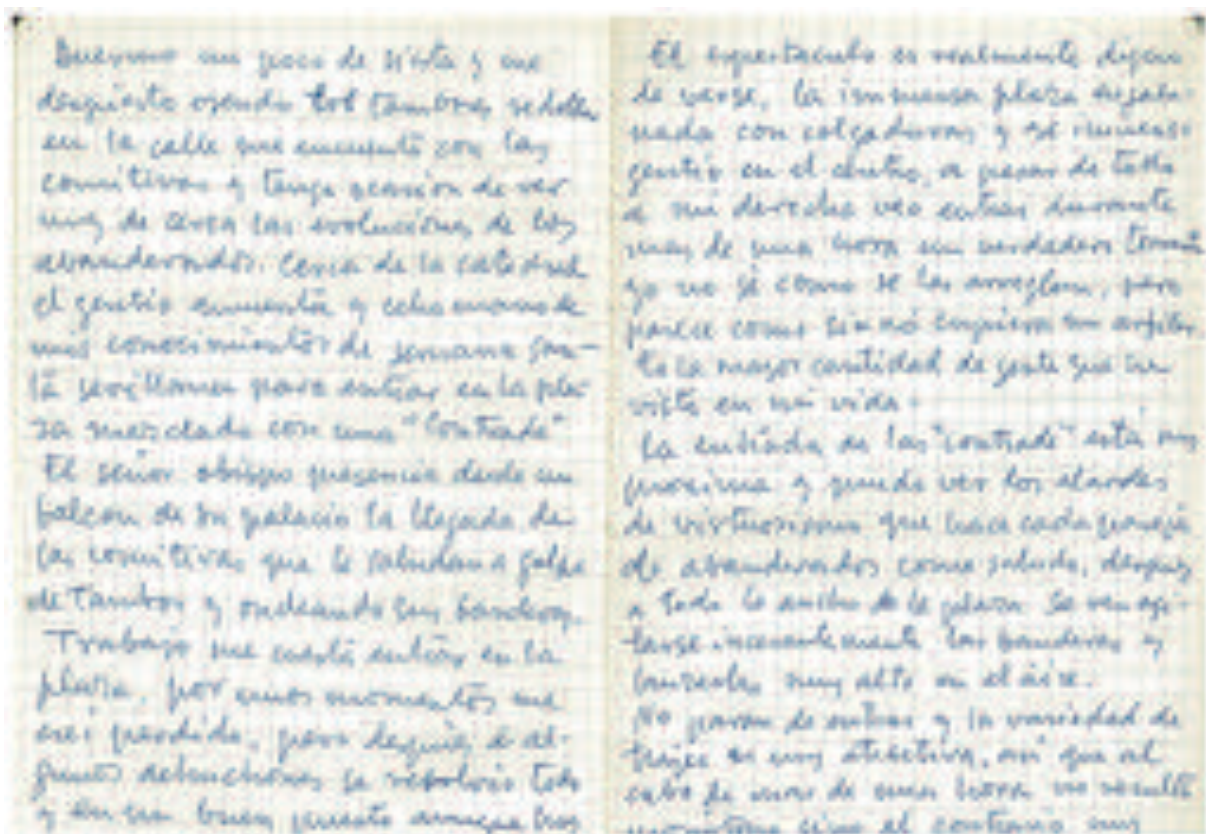 Duermo un poco de siesta y me
despierto oyendo los tambores redoblar
en la calle me encuentro con las
comitivas y tengo ocasion de ver
muy de cerca las evoluciones de los
abanderados. Cerca de la catedral
el gentio aumenta y echo mano de
mis conocimientos de semana san-
ta sevillana para entrar en la pla-
za mezclado con una "Contrade"
El señor obispo presencia desde un
balcon de su palacio la llegada de
las comitivas que le saludan a golpe
de Tambor y ondeando sus banderas.
Trabajo me cuesta entrar en la
plaza, por unos momentos me
crei perdido, pero después de al-
gunos achuchones se resolvio todo
y en un buen puesto aunque
El espectaculo es realmente digno
de verse, la inmensa plaza engala-
nada con colgaduras y el inmenso
gentio en el centro, a pesar de todo
a mi derecha veo entrar durante
mas de una hora un verdadero
yo no sé como se las arreglan, pero
parece como si no cupiera un alfiler.
Es la mayor cantidad de gente que he
visto en mi vida.
La entrada de las "contrade" está muy
proxima y puedo ver los alardes
de virtuosismo que hace cada pareja
de abanderados como saludo, después
a todo lo ancho de la plaza se ven agi-
tarse incesantemente las banderas y
lanzarlas muy alto en el aire.
No paran de entrar y la variedad de
trajes es muy atractiva, asi que al
cabo de mas de una hora no resulta
sino al contrario muy